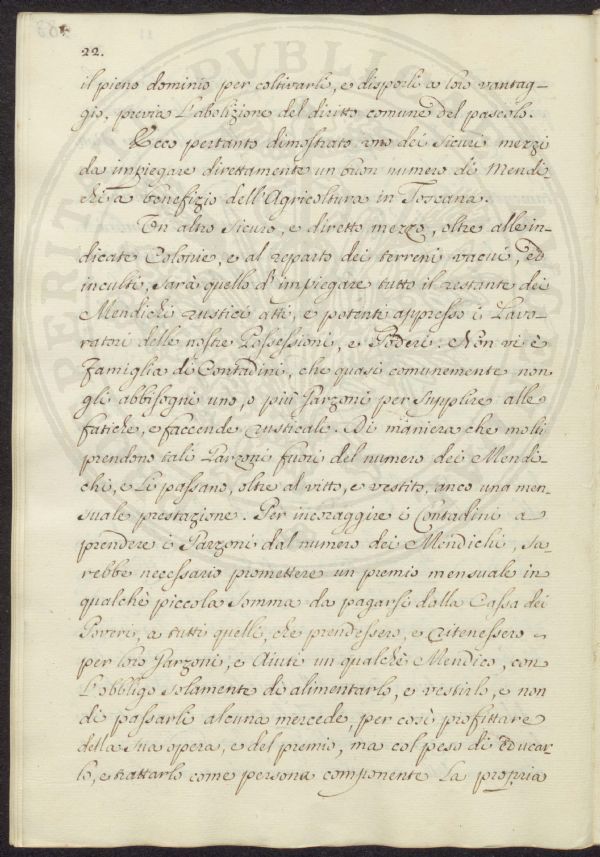 22.
il pieno dominio per coltivarli, e disporli a loro vantag-
gio, previa l'abolizione del diritto comune del pascolo.
Ecco pertanto dimostrato uno dei sicuri mezzi
da impiegare direttamente un buon numero di Mendi-
chi a benefizio dell'Agricoltura in Toscana.
Un altro sicuro, e diretto mezzo, oltre alle in-
dicate Colonie, e al reparto dei terreni vacui, ed
inculti, sarà quello d'impiegare tutto il restante dei
Mendichi rustici atti, e potenti appresso i Lavo-
ratori delle nostre Possessioni, e Poderi. Non vi è
famiglia di Contadini, che quasi comunemente non
gli abbisogni uno, o più Garzoni per supplire alle
fatiche, e faccende rusticale. Di maniera che molti
prendono tali Garzoni fuori del numero dei Mendi-
chi, e li passano, oltre al vitto, e vestito, anco una men-
suale prestazione. Per incoraggire i Contadini a
prendere i Garzoni dal numero dei Mendichi, sa-
rebbe necessario promettere un premio mensuale in
qualche piccola somma da pagarsi dalla Cassa dei
Poveri, a tutti quelli, che prendessero, e ritenessero
per loro Garzoni, e Aiuti un qualchè Mendico, con
l'obbligo solamente di alimentarlo, e vestirlo, e non
di passarli alcuna mercede, per così profittare
della sua opera, e del premio, ma col peso di educar-
lo, e trattarlo come persona componente la propria